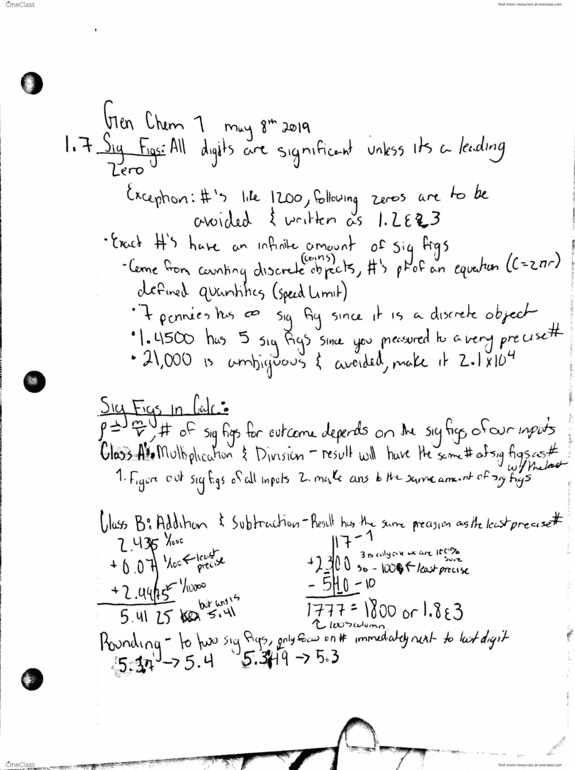 OneClass
find more resources at oneclass.com
Gen Chem 1 may 8th 2019
1.7 Sig Figs: All digits are significant unless its a leading
Zero
Exception: #'s like 1200, following zeros are to be
avoided & written as 1.2E3
• Exact #'s have an infinite amount of sig figs
(coins)
- Come from counting discrete objects, #'s pt of an equation (C=2πr)
defined quantities (speed limit)
• 7 pennies has ∞ sig fig since it is a discrete object
• 1.4500 has 5 sig figs since you measured to a very precise #
• 21,000 is ambiguous & avoided, make it 2.1x10⁴
Sig Figs in Calc:
ρ = m/v, # of sig figs for outcome depends on the sig figs of our inputs
Class A: Multiplication & Division - result will have the same # of sig figs as #
w/ the least
1. Figure out sig figs of all inputs 2. make ans the same amount of sig figs
Class B: Addition & Subtraction - Result has the same precision as the least precise #
2.435 1/1000
+ 0.07 1/100 ← least precise
+ 2.9475 1/10000
5.4125 but ans is 5.41
17 - 1
+2300 - 100 ← least precise
- 540 - 10
1777 = 1800 or 1.8E3
100s column
Rounding - to two sig figs, only focus on # immediately next to last digit
5.37 → 5.4 5.349 → 5.3
OneClass
find more resources at oneclass.com